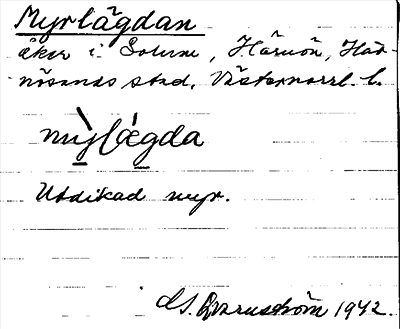 Myrlägdan
åker i Solum, Härnön, Här-
nösands stad, Västernorrl. l.
mỳlǽgda
Utdikad myr.
1942.